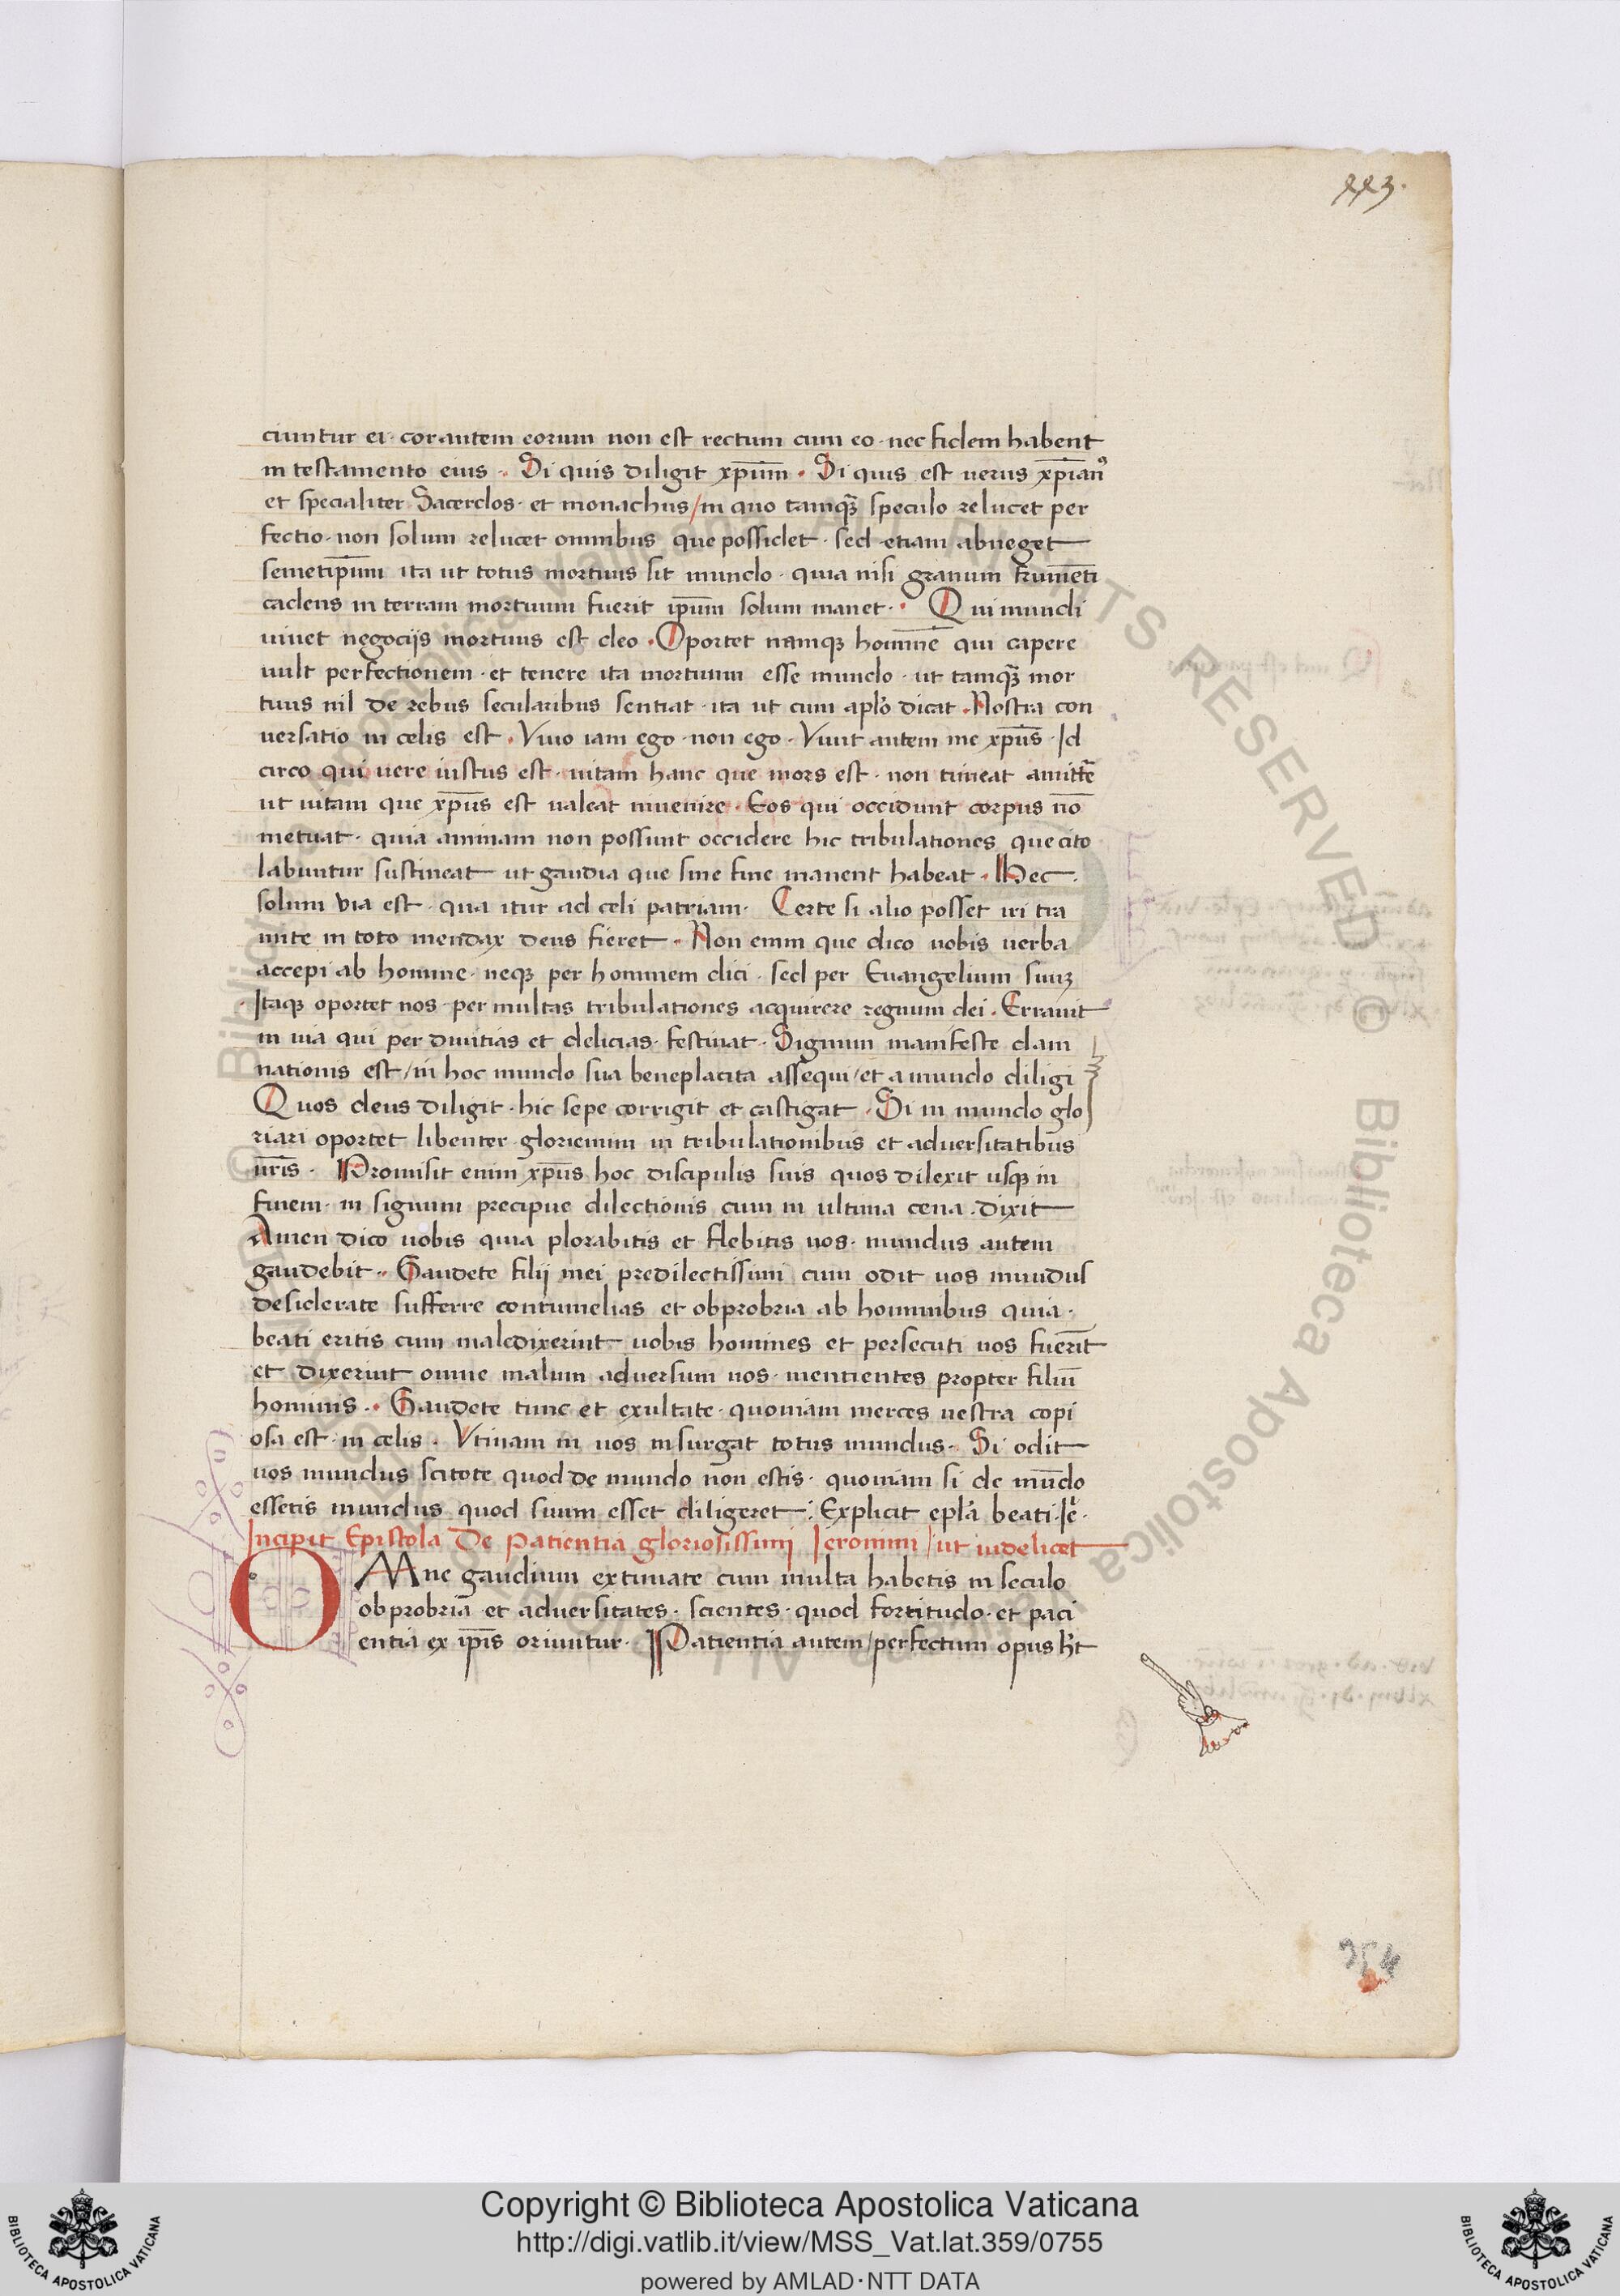 223.
ciuntur ei· cor autem eorum non est rectum cum eo· nec fidem habent
in testamento eius· Si quis diligit xp̅im̅· Si quis est uerus xp̅ianꝰ
et specialiter Sacerdos· et monachus/ in quo tamqꝫ̃ speculo relucet per
fectio· non solum relucet omnibus que possidet· sed etiam abneget
semetip̅um ita ut totus mortuus sit mundo· quia nisi granum frume̅ti
cadens in terram mortuum fuerit ip̅um solum manet· Qui mundi
uiuet negocijs mortuus est deo· Oportet namqꝫ homine̅ qui capere
uult perfectionem· et tenere ita mortuum esse mundo· ut tamqꝫ̃ mor
tuus nil de rebus secularibus sentiat· ita ut cum apl̓o dicat· Nostra con
uersatio in celis est· Viuo iam ego· non ego· Viuit autem me xp̅us· Id
circo qui uere iustus est· uitam hanc que mors est· non timeat amitte̅
ut uitam que xp̅us est ualeat inuenire· Eos qui occidunt corpus no̅
metuat· quia animam non possunt occidere hic tribulationes que cito
labuntur sustineat ut gaudia que sine fine manent habeat· Hec·
solum via est· qua itur ad celi patriam· Certe si alio posset iri tra
mite in toto mendax deus fieret· Non enim que dico uobis uerba
accepi ab homine· neqꝫ per hominem dici· sed per Euangelium suuꝫ
Itaqꝫ oportet nos· per multas tribulationes acquirere regnum dei· Errauit
in uia qui per diuitias et delicias· festinat· Signum manifeste dam
nationis est/ in hoc mundo sua beneplacita assequi/ et a mundo diligi
Quos deus diligit· hic sepe corrigit et castigat· Si in mundo glo
riari oportet libenter gloriemini in tribulationibus et aduersitatibus
ur̅is· Promisit enim xp̅us hoc discipulis suis quos dilexit usqꝫ in
finem· in signum precipue dilectionis cum in ultima cena· dixit
Amen dico uobis quia plorabitis et flebitis uos· mundus autem
gaudebit· Gaudete filij mei predilectissimi cum odit uos mundus
desiderate sufferre contumelias et obprobria ab hominibus quia·
beati eritis cum maledixerint uobis homines et persecuti uos fueri̅t
et dixerint omne malum aduersum uos· mentientes propter filiu̅
hominis· Gaudete tunc et exultate· quoniam merces uestra copi
osa est· in celis· Vtinam in uos insurgat totus mundus· Si odit
uos mundus scitote quod de mundo non estis· quoniam si de mu̅do
essetis mundus quod suum esset diligeret: Explicit epl̓a beati Ie̅·
Incipit Epistola De Patientia gloriosissimi Ieronimi/ ut uidelicet
OMne gaudium extimate cum multa habetis in seculo
obprobria et aduersitates· scientes· quod fortitudo· et paci
entia ex ip̅is oriuntur· Patientia autem/ perfectum opus h̓t
354
Copyright © Biblioteca Apostolica Vaticana
http://digi.vatlib.it/view/MSS_Vat.lat.359/0755
powered by AMLAD·NTT DATA
BIBLIOTECA APOSTOLICA VATICANA
BIBLIOTECA APOSTOLICA VATICANA